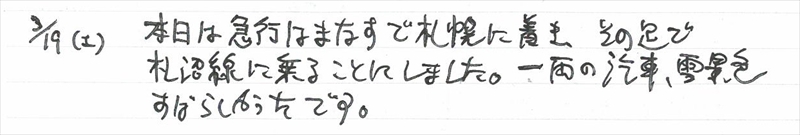 3/19(土) 本日は急行はまなすで札幌に着き その足で
札沼線に乗ることにしました。一両の汽車、雪景色
すばらしかったです。